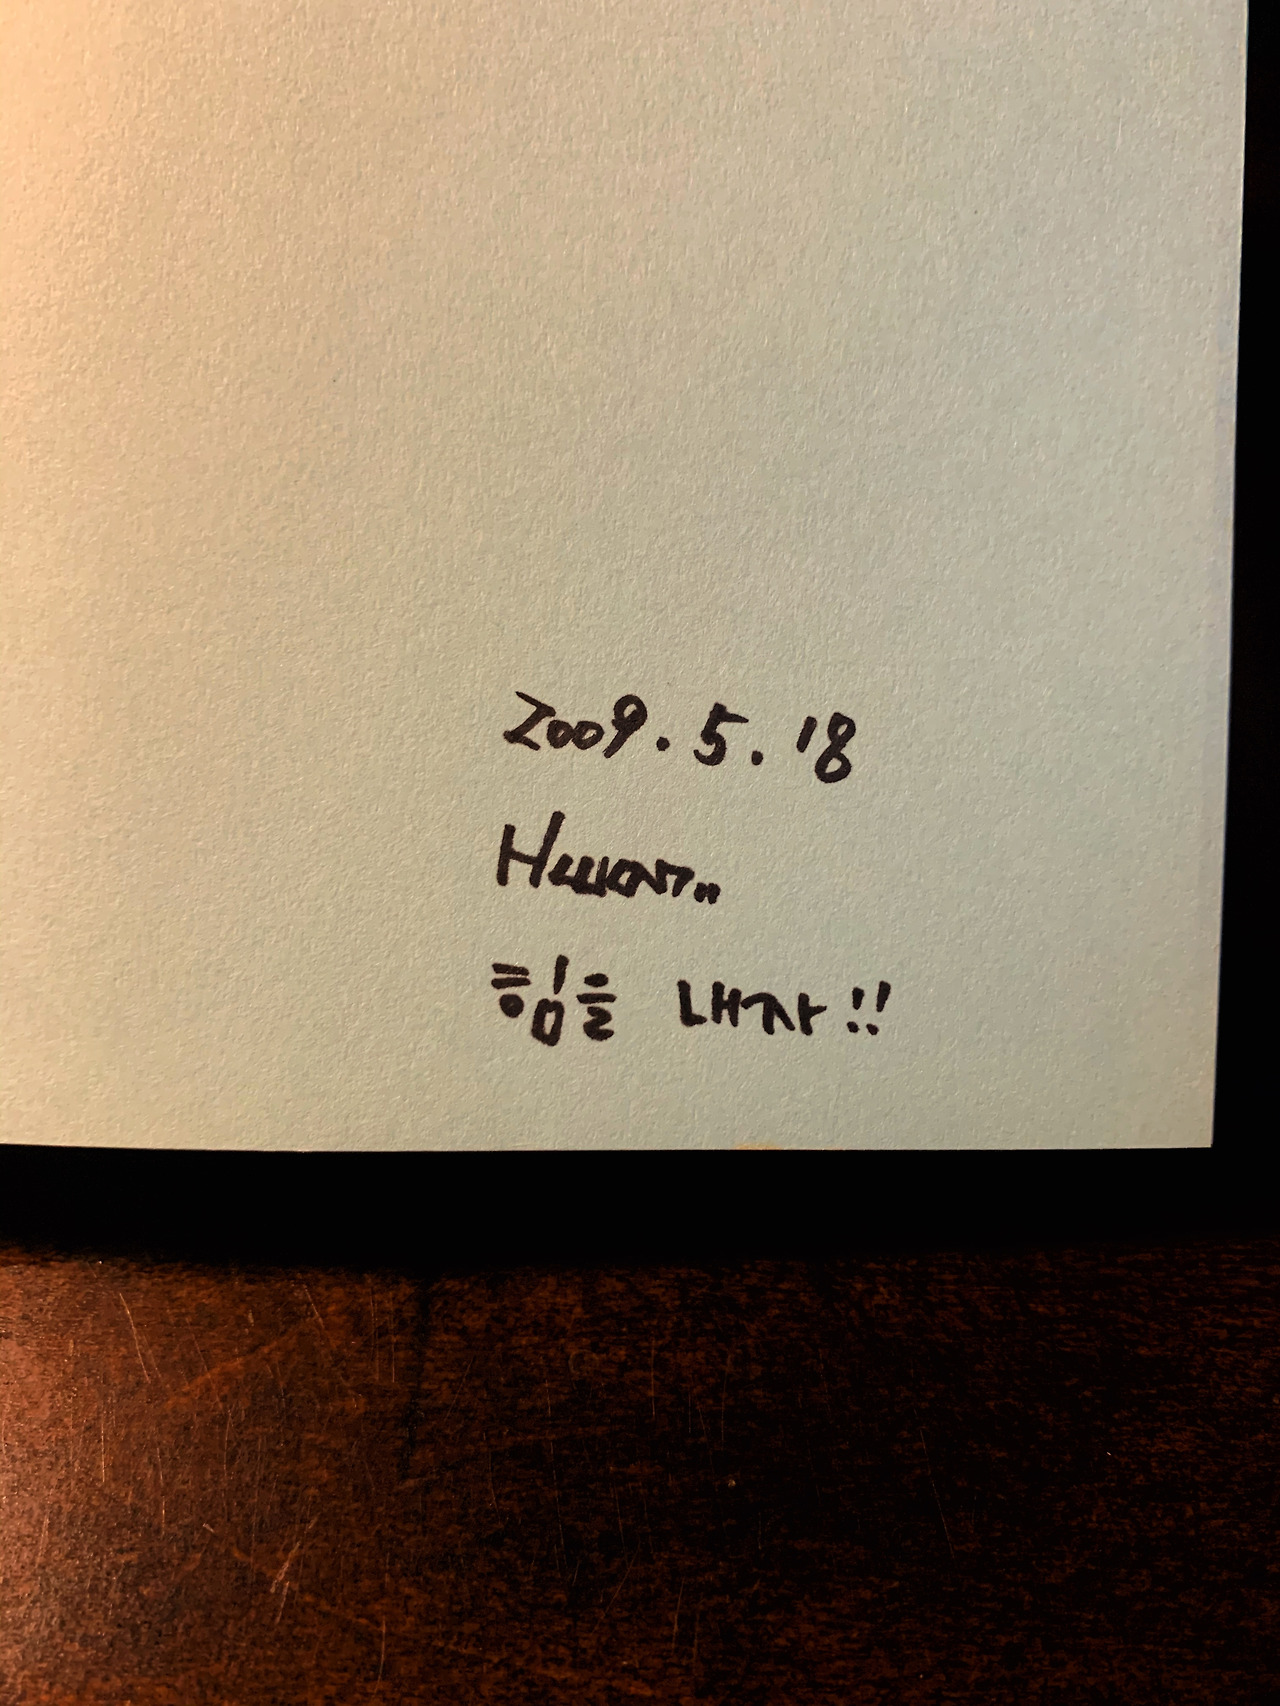 2009. 5. 18
힘을 내자!!